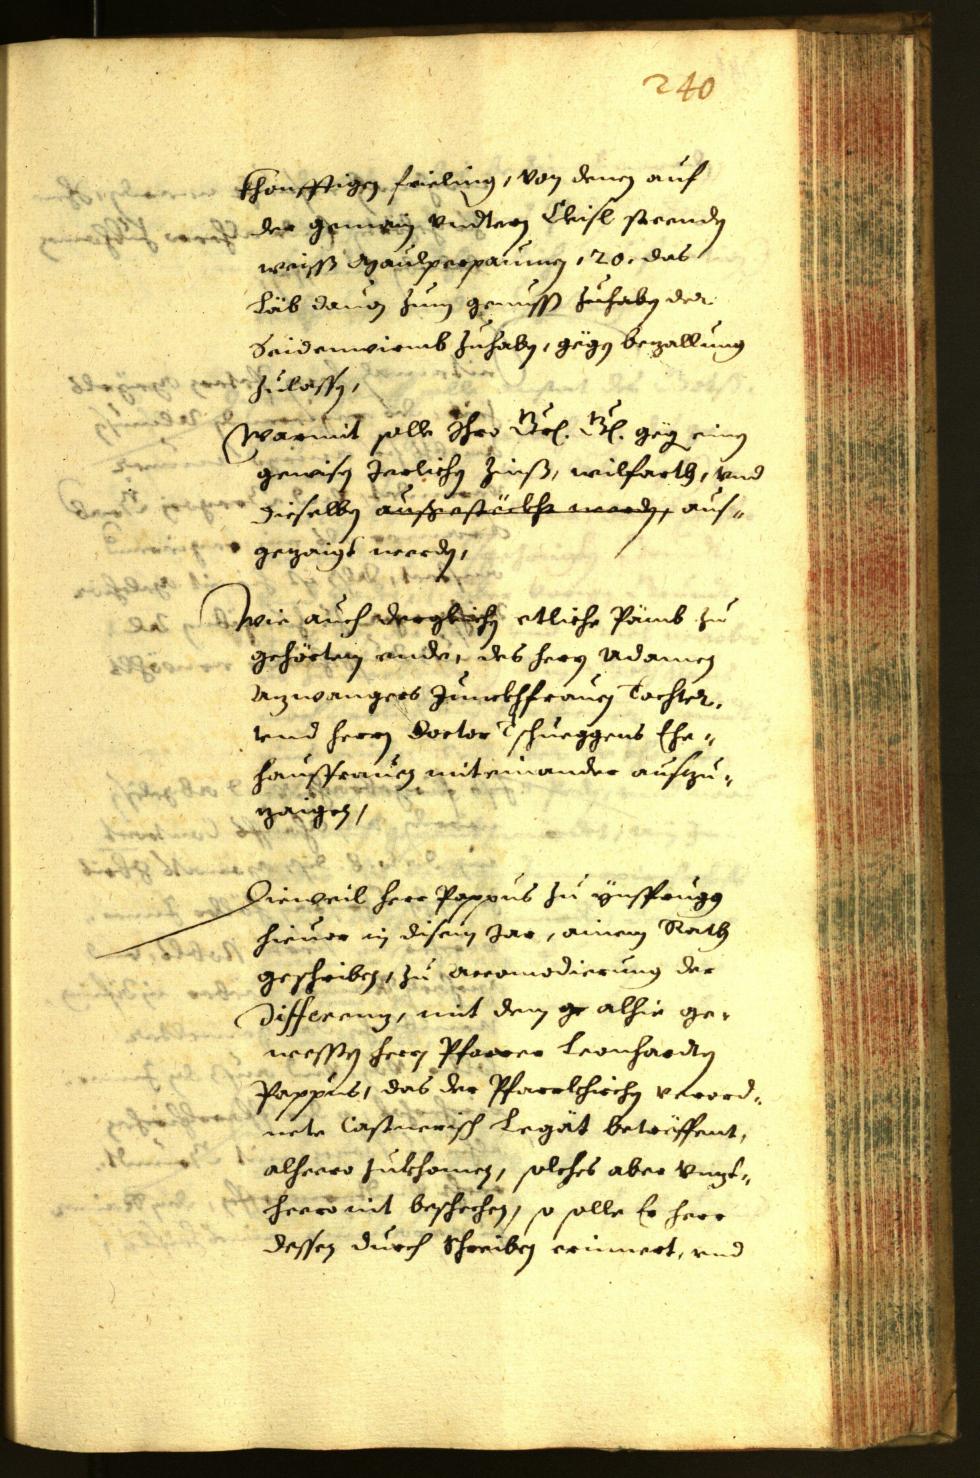 240
khonfftigen frieling, von denen auf
der gemain vndtern Eeisl steenden
weiss Maulperpaumen, 20. das
Läb dauon zum genuss zuhaben der
Seidenwiermb zuhaben, gegen bezallung
zulassen,
Warmit solle Ihro Gn. gegen einen
gewisen Jerlichen Zinß, wilfarth, vnd
dieselben außgesteckht werden, auf-
gezaigt werden,
Wie auch dergleichen etliche Pämb zu
gehörten ende, des herrn Adamen
Anzwangers Junckhfrauen Tochter,
vnd herrn Doctor Tschueggens Ehe-
haussfrauen miteinander aufzu-
zaigen,
Dieweil herr Pappus zu Ynsprugg
hieuor in disem Jar, ainem Rath
geschriben, zu accomodierung der
Differenz, mit dem ge alhie ge-
wessten herrn Pfarrer Leonharden
Pappus, das der Pfarrkhirchen verord-
nete Castnerisch Legät betreffent,
alheero zukhomen, solches aber vnzt-
heero nit beschechen, so solle Er herr
dessen durch Schreiben erinnert, vnd